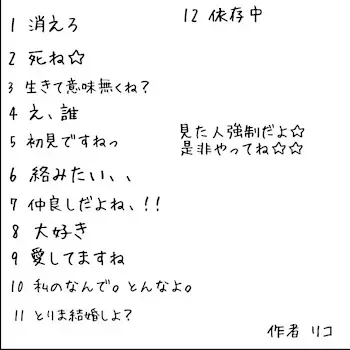 1 消えろ
2 死ね☆
3 生きて意味無くね?
4 え、誰
5 初見ですねっ
6 絡みたい、、
7 仲良しだよね、!!
8 大好き
9 愛してますね
10 私のなんで。とんなよ。
11 とりま結婚しよ?
12 依存中
見た人強制だよ☆
是非やってね☆☆
作者 リコ